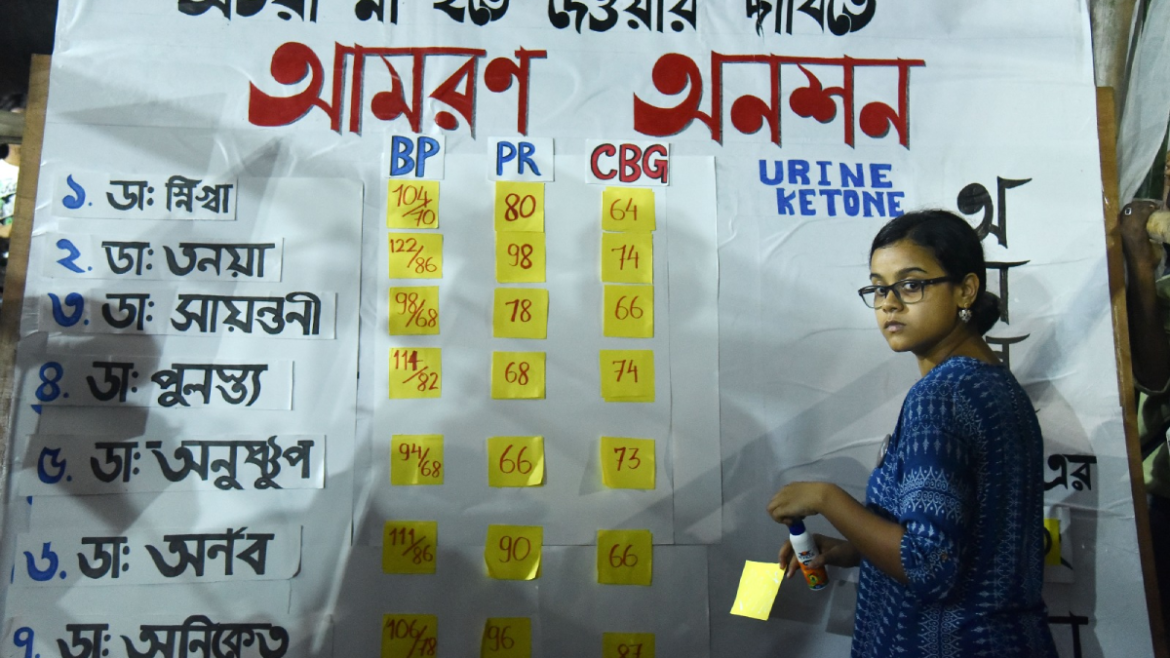 না হতে দেওয়ার দাবিতে
আমরণ অনশন
BP PR CBG URINE KETONE
১. ডাঃ স্নিগ্ধা 104/70 80 64
২. ডাঃ তনয়া 122/86 98 74
৩. ডাঃ সায়ন্তনী 98/68 78 66
৪. ডাঃ পুলস্ত্য 114/82 68 74
৫. ডাঃ অনুষ্টুপ 94/68 66 73
এর
৬. ডাঃ অর্ণব 111/86 90 66
৭. ডাঃ অনিকেত 106/78 96 87